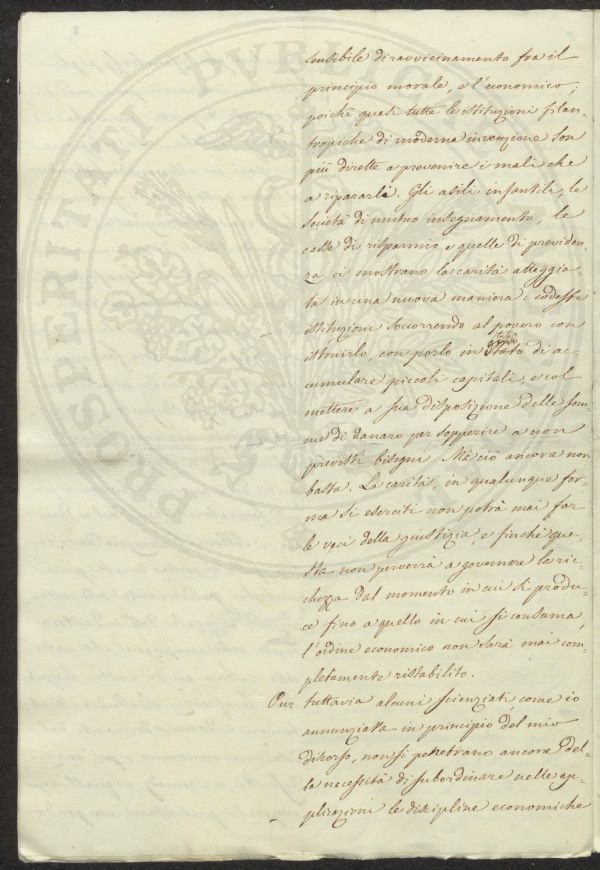 sensibile di ravvicinamento fra il
principio morale, e l'economico;
poichè quasi tutte le istituzioni filan-
tropiche di moderna invenzione son
più dirette a prevenire i mali che
a ripararli. Gli asili infantili, le
Società di mutuo insegnamento, le
casse di risparmio e quelle di previden-
za ci mostrano la carità atteggia-
ta in una nuova maniera: codeste
istituzioni soccorrendo al povero con
istruirlo, con porlo in stato di ac-
cumulare piccoli capitali, e col
mettere a sua disposizione delle som-
me di danaro per sopperire a non
previsti bisogni. Mà ciò ancora non
basta. La carità, in qualunque for-
ma si eserciti non potrà mai far
le veci della giustizia, e finchè que-
sta non perverrà a governare la ric-
chezza dal momento in cui si produ-
ce fino a quello in cui si consuma,
l'ordine economico non sarà mai com-
pletamente ristabilito.
Pur tuttavia alcuni scienziati, come io
annunziava in principio del mio
discorso, non si penetrano ancora del-
la necessità di subordinare nelle ap-
plicazioni le discipline economiche
PROSPERITATI PVBLIC